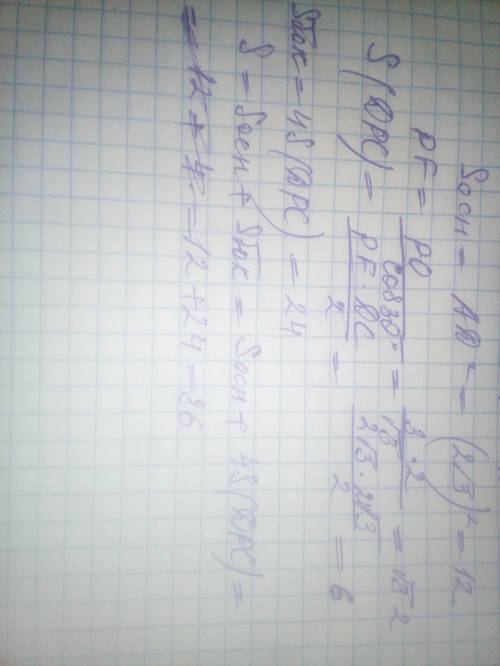 Sосн = AD² = (2√3)² = 12
PF = PO / cos30° = 3·2 / √3 = √3·2
S(DPC) = PF·DC / 2 = 2√3·2√3 / 2 = 6
Sбок = 4S(DPC) = 24
S = Sосн + Sбок = Sосн + 4S(DPC) =
= 12 + 24 = 36